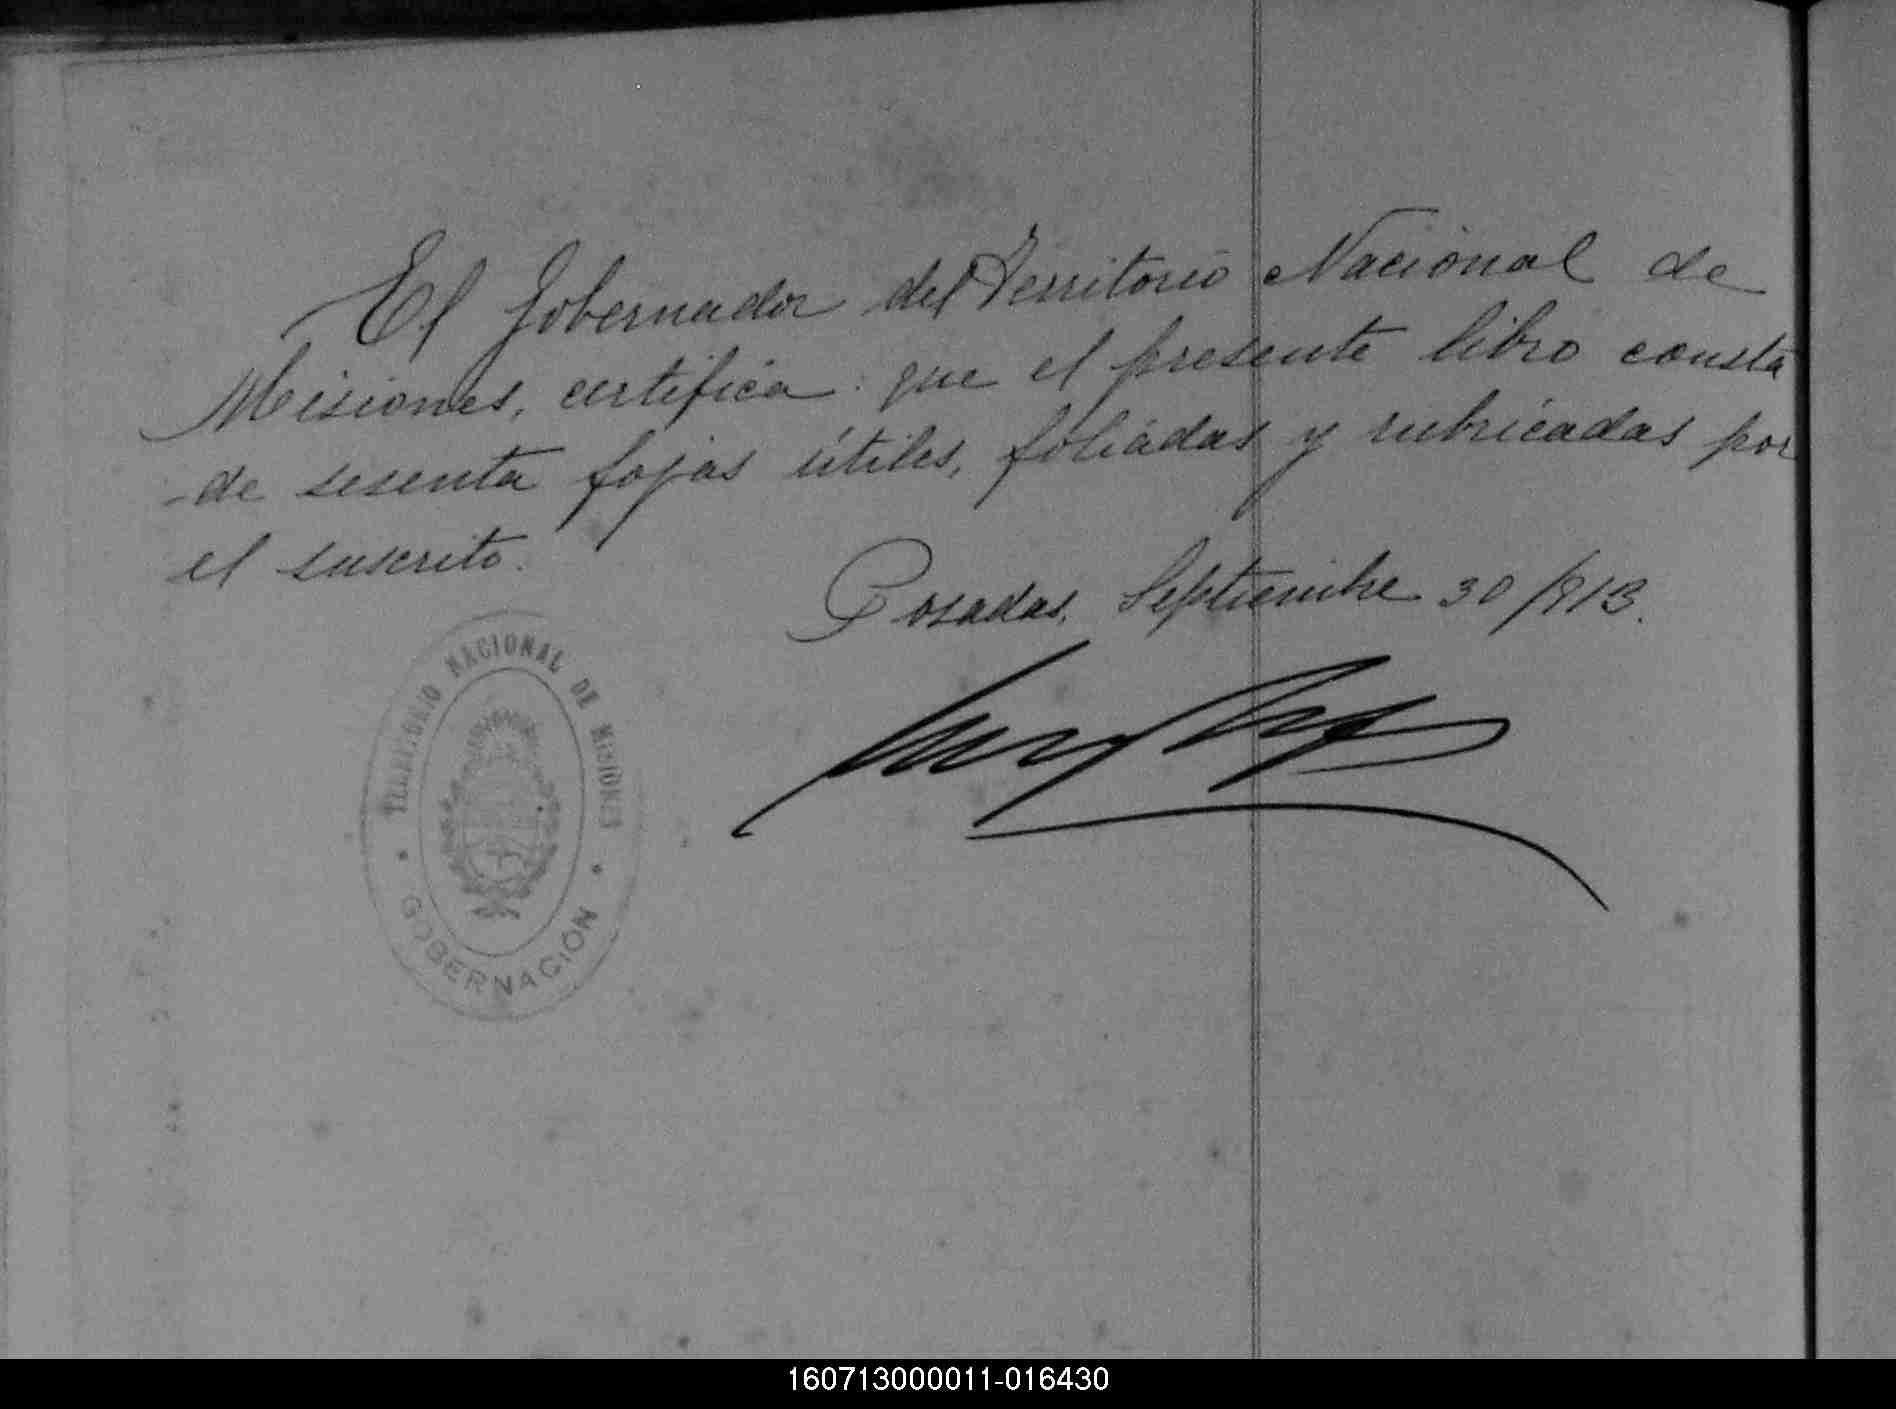 El Gobernador del Territorio Nacional de
Misiones, certifica: que el presente libro consta
de sesenta fojas útiles, foliadas y rubricadas por
el suscrito.
Posadas, Septiembre 30/913.
TERRITORIO NACIONAL DE MISIONES
GOBERNACIÓN
160713000011-016430